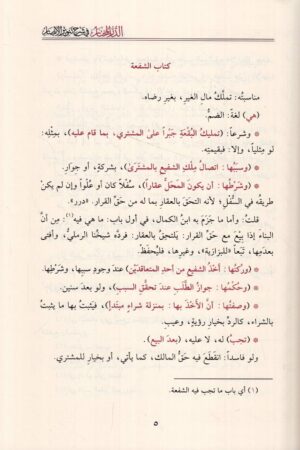 الدر المختار في شرح تنوير الأبصار
كتاب الشفعة
مناسبتُه: تملُّكُ مالِ الغيرِ، بغيرِ رضاه.
(هي) لغة: الضمُّ.
* وشرعاً: (تمليكُ البُقْعَةِ جَبْراً على المشتري، بما قام عليه)، بمِثْلِه:
لو مِثلياً، وإلا: فبقيمتِه.
* (وسببُها: اتصالُ مِلْكِ الشفيعِ بالمشترَى)، بشَرِكةٍ، أو جِوارٍ.
* (وشَرْطُها: أن يكونَ المَحَلُّ عقاراً)، سُفْلاً كان أو عُلْواً وإن لم يكن
طريقُه في السُّفْلِ؛ لأنه التَحَقَ بالعقارِ بما له من حَقِّ القرار. «درر».
قلتُ: وأما ما جَزَمَ به ابنُ الكمال، في أولِ باب: ما هي فيه(١): مِن أنَّ
البناءَ إذا بِيْعَ مع حَقِّ القرار: يَلتحِقُ بالعقار: فردَّه شيخُنا الرملي، وأفتى
بعدمِها، تبعاً «للبزازية»، وغيرِها، فليُحفَظْ.
* (ورُكنُها: أخْذُ الشفيعِ من أحدِ المتعاقدَيْن) عندَ وجودِ سببِها، وشَرْطِها.
* (وحُكمُها: جوازُ الطلَبِ عندَ تحقُّقِ السبب)، ولو بعدَ سنين.
* (وصفتُها: أنَّ الأَخْذَ بها: بمنزلةِ شراءٍ مبتدإٍ)، فيَثبُتُ بها ما يثبتُ
بالشراء، كالردِّ بخيارِ رؤيةٍ، وعيبٍ.
* (تجبُ) له، لا عليه، (بعدَ البيع).
ولو فاسداً: انقَطَعَ فيه حَقُّ المالك، كما يأتي، أو بخيارٍ للمشتري.
(١) أي باب ما تجب فيه الشفعة.
٥